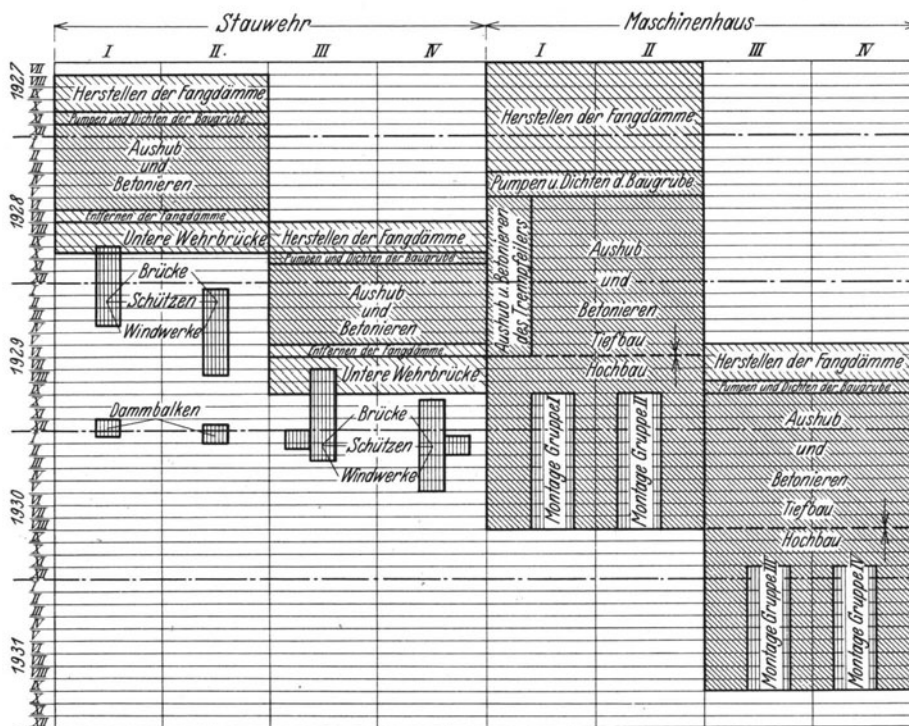 Stauwehr
Maschinenhaus
I II. III IV I II III IV
1927
VII
VIII
IX
X
XI
XII
1928
I
II
III
IV
V
VI
VII
VIII
IX
X
XI
XII
1929
I
II
III
IV
V
VI
VII
VIII
IX
X
XI
XII
1930
I
II
III
IV
V
VI
VII
VIII
IX
X
XI
XII
1931
I
II
III
IV
V
VI
VII
VIII
IX
X
XI
XII
Herstellen der Fangdämme
Pumpen und Dichten der Baugrube
Aushub
und
Betonieren
Entfernen der Fangdämme
Untere Wehrbrücke
Brücke
Schützen
Windwerke
Dammbalken
Herstellen der Fangdämme
Pumpen und Dichten der Baugrube
Aushub
und
Betonieren
Entfernen der Fangdämme
Untere Wehrbrücke
Brücke
Schützen
Windwerke
Herstellen der Fangdämme
Pumpen u. Dichten d. Baugrube
Aushub u. Betonieren
des Trennpfeilers
Aushub
und
Betonieren
Tiefbau
Hochbau
Montage Gruppe I
Montage Gruppe II
Herstellen der Fangdämme
Pumpen und Dichten der Baugrube
Aushub
und
Betonieren
Tiefbau
Hochbau
Montage Gruppe III
Montage Gruppe IV